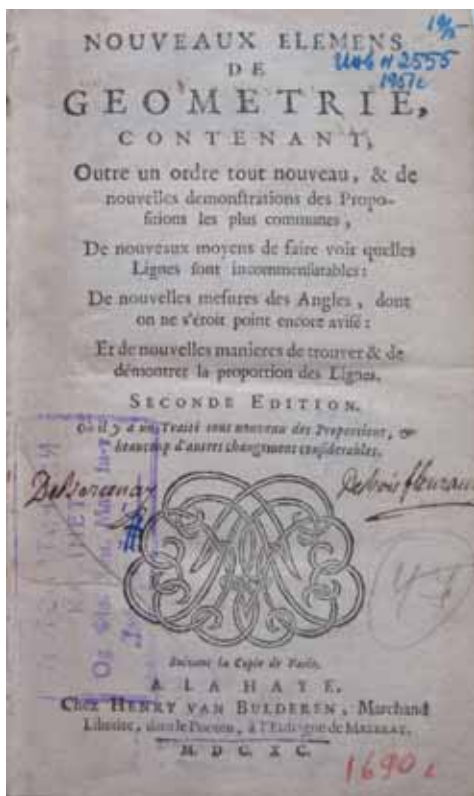 NOUVEAUX ELEMENS
DE
GEOMETRIE,
CONTENANT,
Outre un ordre tout nouveau, & de
nouvelles demonſtrations des Propo-
ſitions les plus communes,
De nouveaux moyens de faire voir quelles
Lignes ſont incommenſurables:
De nouvelles meſures des Angles, dont
on ne s'étoit point encore aviſé:
Et de nouvelles manieres de trouver & de
démontrer la proportion des Lignes.
SECONDE EDITION.
Où il y a un Traité tout nouveau des Proportions, &
beaucoup d'autres changemens conſiderables.
Suivant la Copie de Paris.
A LA HAYE,
Chez HENRY VAN BULDEREN, Marchand
Libraire, dans le Pooten, à l'Enſeigne de MEZERAY.
M. DC. XC.
2555
1951г
47
1690 г